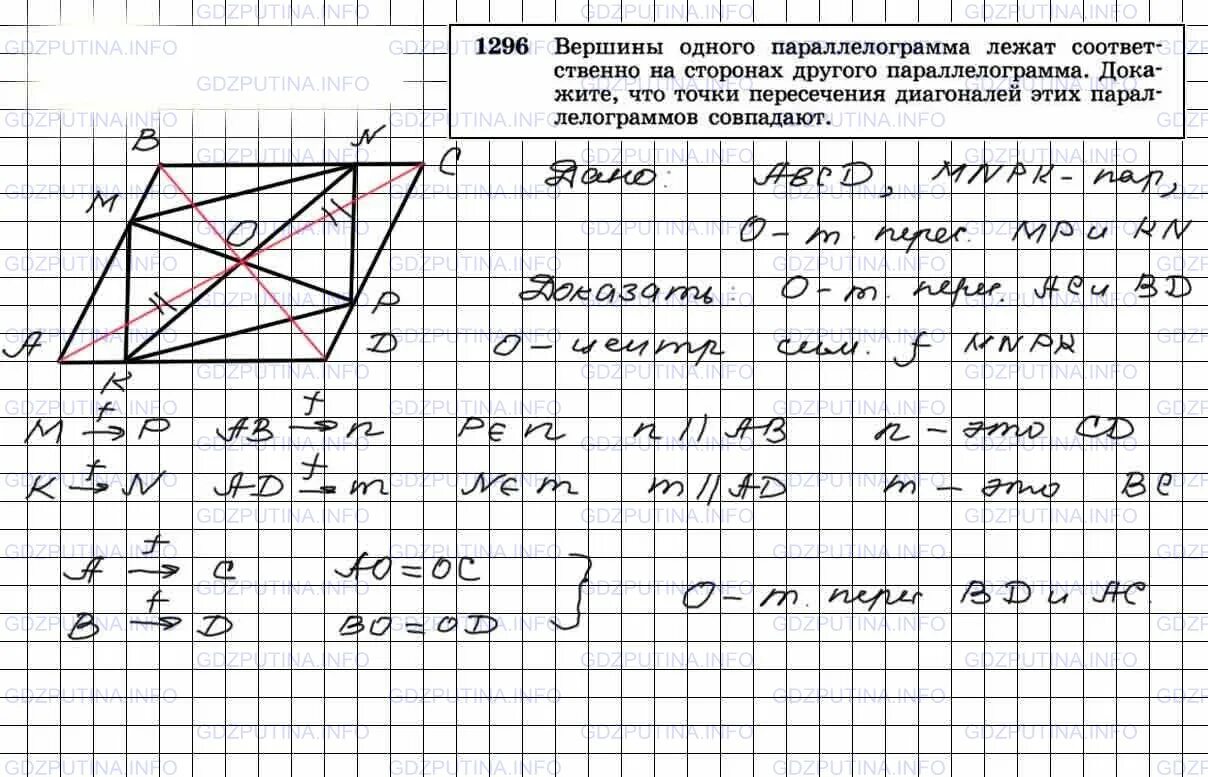 1296 Вершины одного параллелограмма лежат соответ-
ственно на сторонах другого параллелограмма. Дока-
жите, что точки пересечения диагоналей этих парал-
лелограммов совпадают.
B N C
M O
P
A K D
Дано: ABCD, MNPK - пар,
O - т. перес. MP и KN
Доказать: O - т. перес. AC и BD
O - центр сим. f MNPK
M f→ P AB f→ n P∈n n || AB n - это CD
K f→ N AD f→ m N∈m m || AD m - это BC
A f→ C AO = OC
B f→ D BO = OD
} O - т. перес BD и AC.
GDZPUTINA.INFO